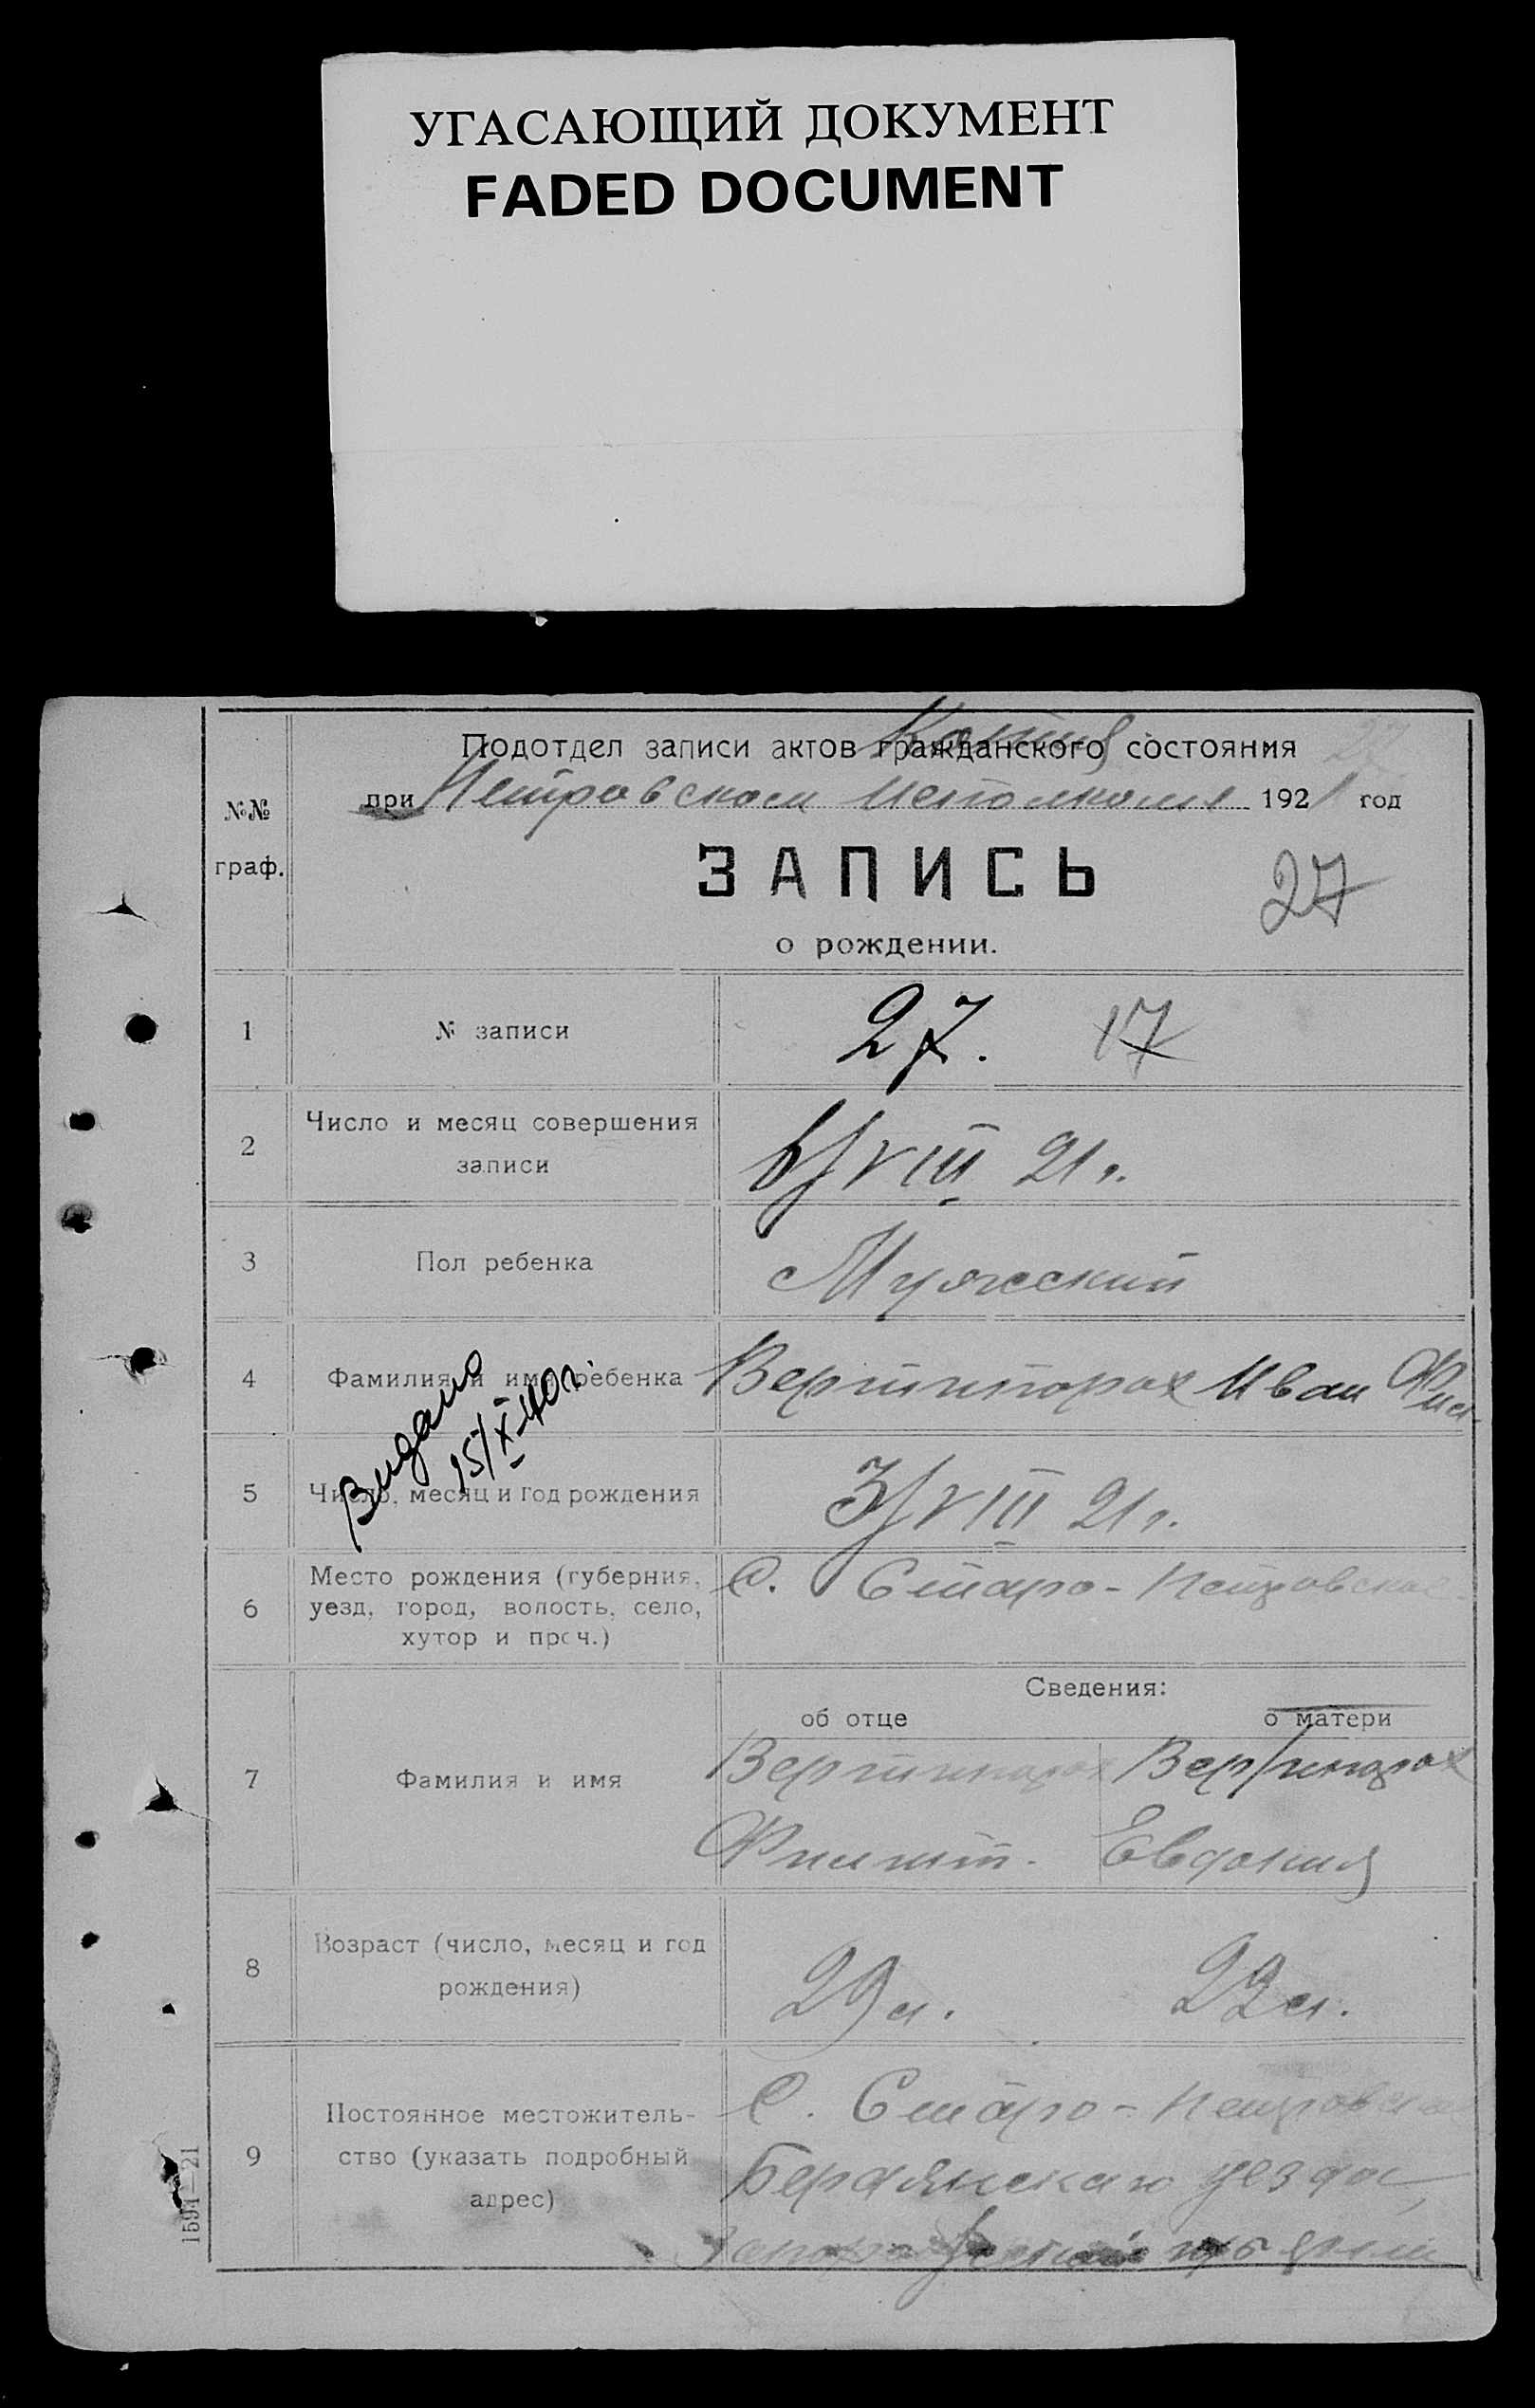 УГАСАЮЩИЙ ДОКУМЕНТ
FADED DOCUMENT
Копия
Подотдел записи актов гражданского состояния
при Петровском Исполкоме 1921 год
№№
граф.
ЗАПИСЬ
27
о рождении.
1 № записи 27. 17
2 Число и месяц совершения
записи
6/VIII 21 г.
3 Пол ребенка Мужеский
4 Фамилия и имя ребенка Вертипорох Иван Фил.
Видано
15/X-40 г.
5 Число, месяц и год рождения 3/VIII 21 г.
6 Место рождения (губерния,
уезд, город, волость, село,
хутор и проч.)
С. Старо-Петровское
Сведения:
об отце о матери
7 Фамилия и имя Вертипорох Вертипорох
Филипп. Евдокия
8 Возраст (число, месяц и год
рождения)
29 л. 22 л.
9 Постоянное местожитель-
ство (указать подробный
адрес)
С. Старо-Петровское
Бердянскаго уезда,
Запорожской губернии
1594—21